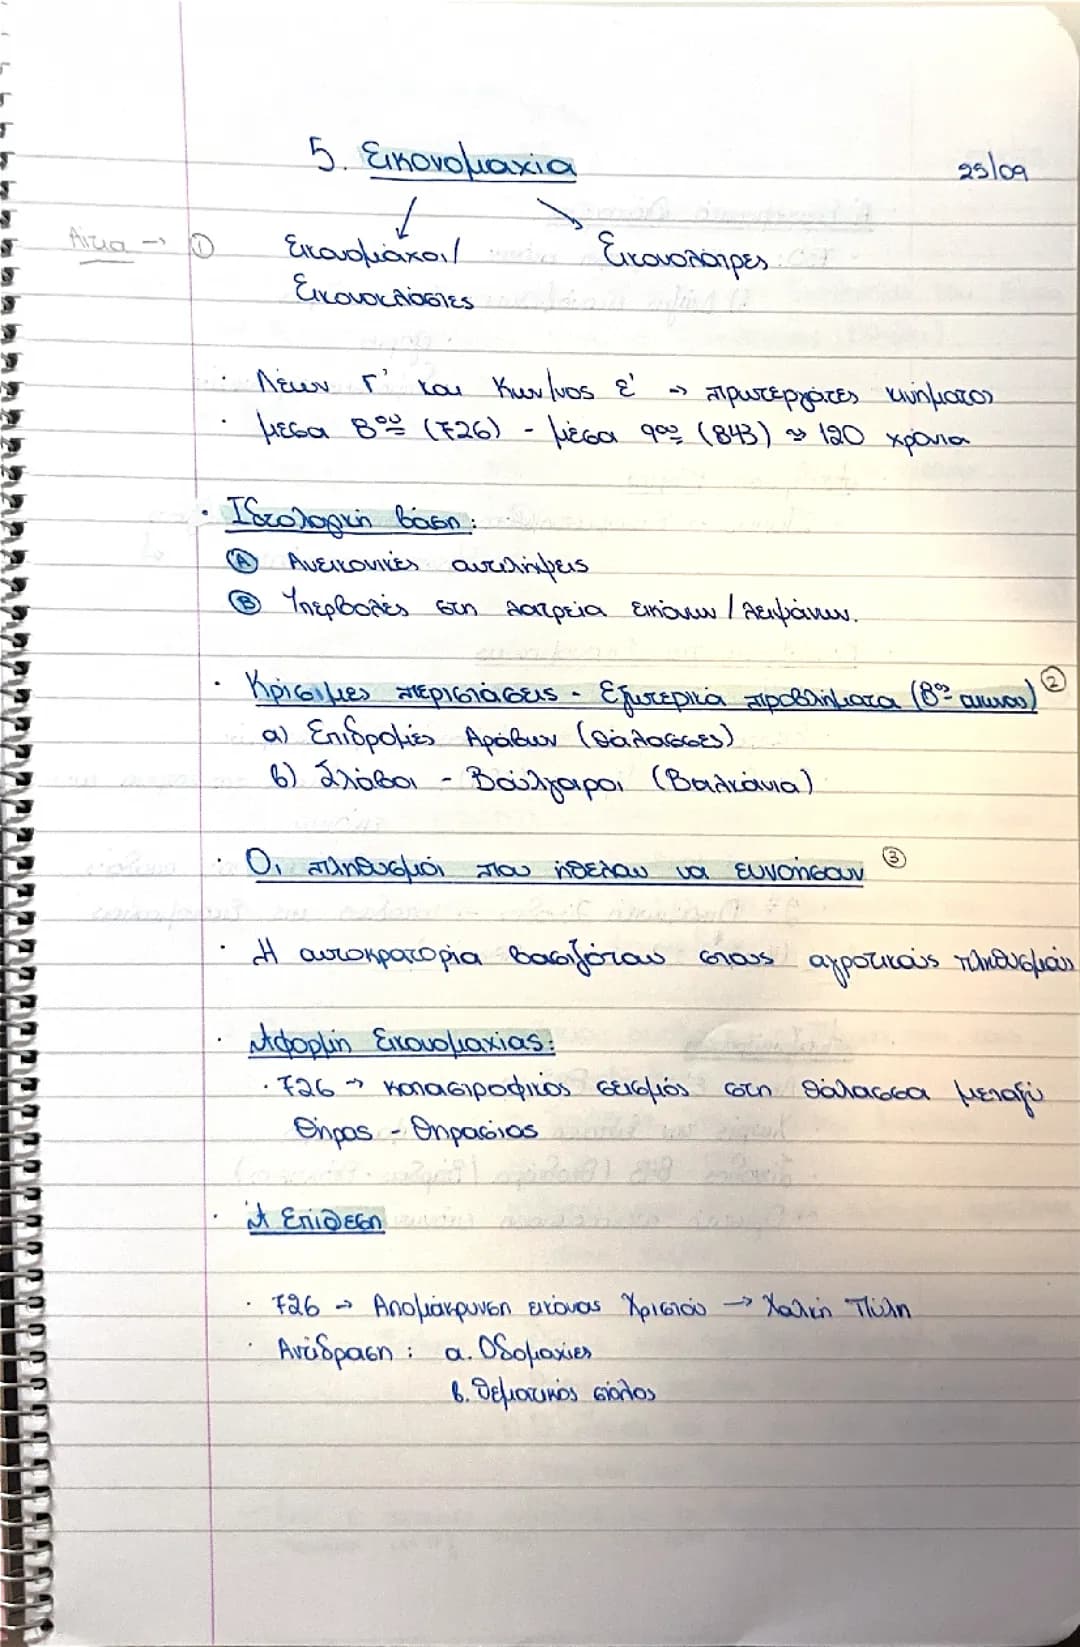 5. Εικονομαχία
25/09
Αίτια → ①
Εικονομάχοι/ Εικονολάτρες
Εικονοκλάστες
· Λέων Γ' και Κων/νος Ε' → πρωτεργάτες κινήματος
· μέσα 8ου (726) - μέσα 9ου (843) → 120 χρόνια
· Ιδεολογική βάση:
Ⓐ Ανεικονικές αντιλήψεις
Ⓑ Υπερβολές στη λατρεία εικόνων / λειψάνων.
· Κρίσιμες περιστάσεις - Εξωτερικά προβλήματα (8ος αιώνας) ②
α) Επιδρομές Αράβων (θάλασσες)
β) Σλάβοι - Βούλγαροι (Βαλκάνια)
· Οι πληθυσμοί που ήθελαν να ευνοήσουν ③
· Η αυτοκρατορία βασιζόταν στους αγροτικούς πληθυσμούς
· Αφορμή Εικονομαχίας:
· 726 → καταστροφικός σεισμός στη θάλασσα μεταξύ
Θήρας - Θηρασίας
· Η Επίθεση
· 726 → Απομάκρυνση εικόνας Χριστού → Χαλκή Πύλη
· Αντίδραση: α. Οδομαχίες
β. Θεματικός στόλος